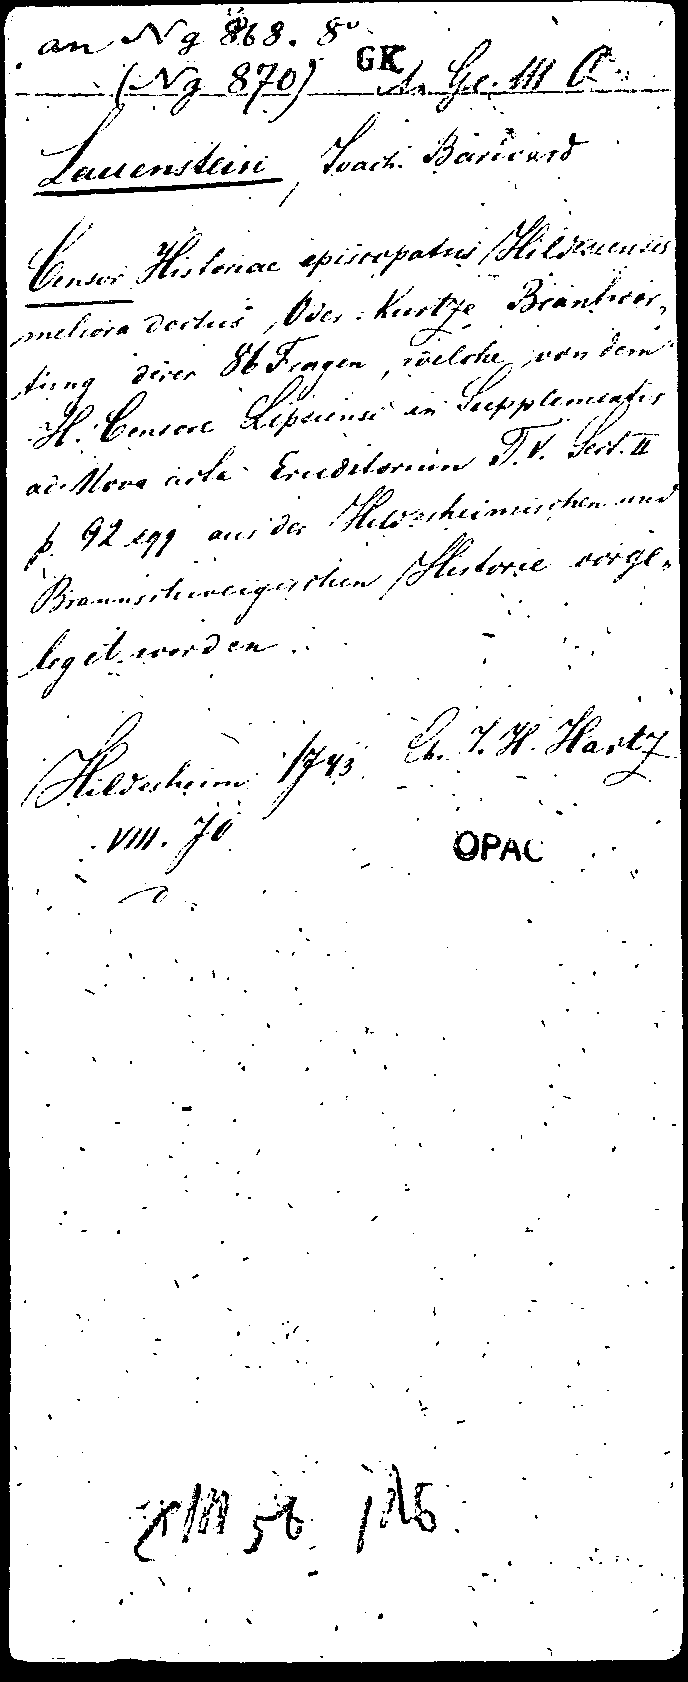 an Ng 868. 8°
(Ng 870) GK A. Ge. III
Lauenstein, Joach. Barward
Censor Historiae episcopatus Hildesiensis
meliora doctus, Oder Kurtze Beantwor-
tung derer 86 Fragen, welche von dem
H. Censore Lipsiensi in Supplementis
ad Nova acta Eruditorum T. V. Sect. II
p. 92 sqq aus der Hildesheimischen und
Braunschweigischen Historie vorge-
leget worden.
Hildesheim 1743 J. H. Hartz
VIII. 70
OPAC
56